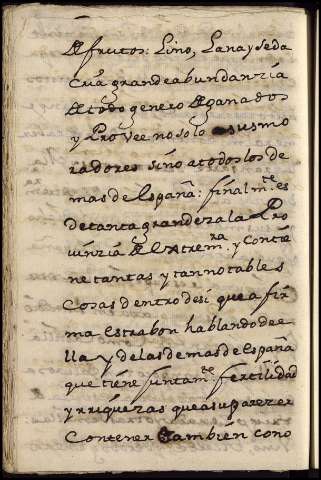 de frutos: Lino, Lana y seda
cria grande abundanzia
de todo genero de ganados
y Provee no solo a sus mo
radores sino a todos los de
mas de España: finalmte es
de tanta grandeza la Pro
uinzia de Extremra. y Contie
ne tantas y tan notables
cosas dentro de si que afir
ma estrabon hablando de e
lla y de las demas de España
que tiene juntamte fertilidad
y rriquezas que a su parezer
Contener tambien cono